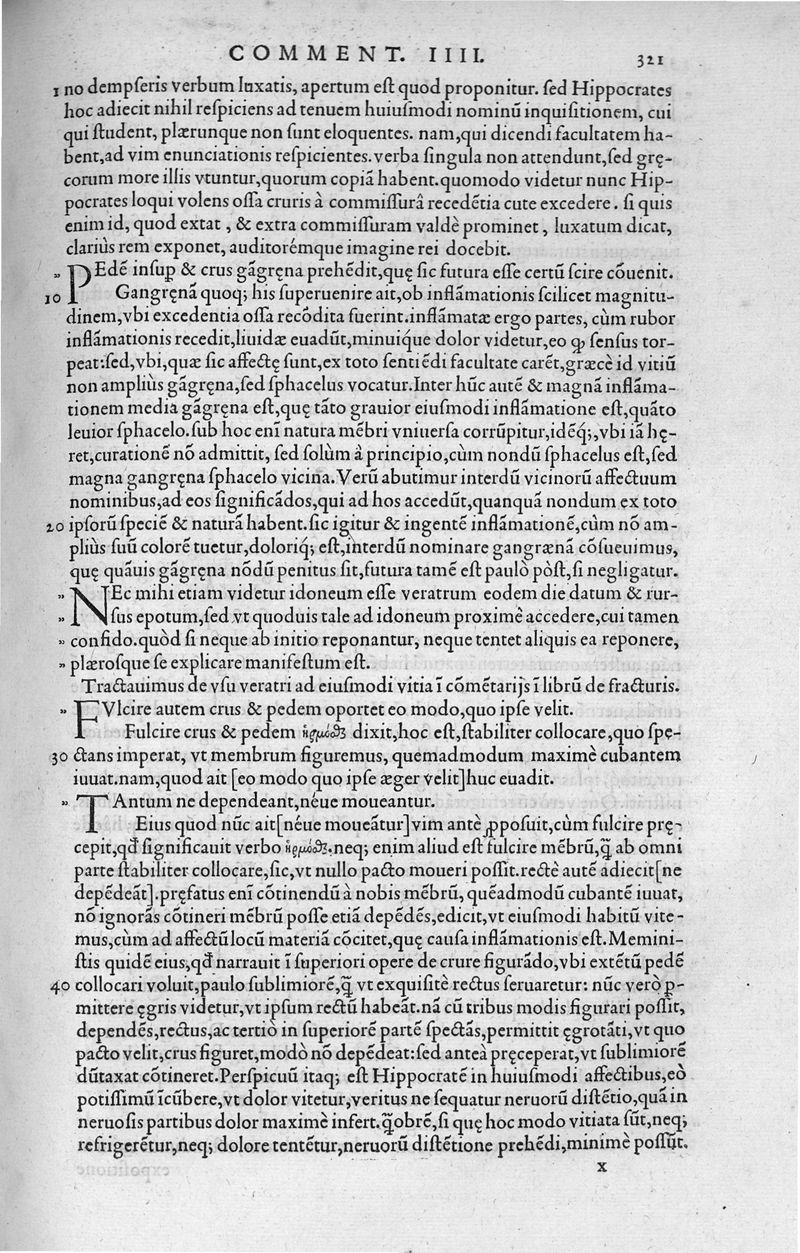 COMMENT. IIII. 321
1 no dempseris verbum luxatis, apertum est quod proponitur. sed Hippocrates
hoc adiecit nihil respiciens ad tenuem huiusmodi nominū inquisitionem, cui
qui student, plærunque non sunt eloquentes. nam,qui dicendi facultatem ha-
bent,ad vim enunciationis respicientes.verba singula non attendunt,sed grę-
corum more illis vtuntur,quorum copiā habent.quomodo videtur nunc Hip-
pocrates loqui volens ossa cruris à commissurâ recedētia cute excedere. si quis
enim id, quod extat, & extra commissuram valdè prominet, luxatum dicat,
clariùs rem exponet, auditorémque imagine rei docebit.
„ PEdē insup & crus gāgręna prehēdit,quę sic futura esse certū scire cōuenit.
10 Gangręnā quoq; his superuenire ait,ob inflāmationis scilicet magnitu-
dinem,vbi excedentia ossa recōdita fuerint.inflāmatæ ergo partes, cùm rubor
inflāmationis recedit,liuidæ euadūt,minuiq́ue dolor videtur,eo ꝙ sensus tor-
peat:sed,vbi,quæ sic affectę sunt,ex toto sentiēdi facultate carēt,græcè id vitiū
non ampliùs gāgręna,sed sphacelus vocatur.Inter hūc autē & magnā inflāma-
tionem media gāgręna est,quę tāto grauior eiusmodi inflāmatione est,quāto
leuior sphacelo.sub hoc enī natura mēbri vniuersa corrūpitur,idēq́;,vbi iā hę-
ret,curationē nō admittit, sed solùm à principio,cùm nondū sphacelus est,sed
magna gangręna sphacelo vicina.Verū abutimur interdū vicinorū affectuum
nominibus,ad eos significādos,qui ad hos accedūt,quanquā nondum ex toto
20 ipsorū speciē & naturā habent.sic igitur & ingentē inflāmationē,cùm nō am-
pliùs suū colorē tuetur,doloriq́; est,interdū nominare gangrænā cōsueuimus,
quę quāuis gāgręna nōdū penitus sit,futura tamē est paulò pòst,si negligatur.
„ NEc mihi etiam videtur idoneum esse veratrum eodem die datum & rur-
„ sus epotum,sed vt quoduis tale ad idoneum proximè accedere,cui tamen
„ confido.quòd si neque ab initio reponantur, neque tentet aliquis ea reponere,
„ plærosque se explicare manifestum est.
Tractauimus de vsu veratri ad eiusmodi vitia ī cōmētarijs ī librū de fracturis.
„ FVlcire autem crus & pedem oportet eo modo,quo ipse velit.
Fulcire crus & pedem dixit,hoc est,stabiliter collocare,quo spę-
30 ctans imperat, vt membrum figuremus, quemadmodum maximè cubantem
iuuat.nam,quod ait [eo modo quo ipse æger velit]huc euadit.
„ TAntum ne dependeant,néue moueantur.
Eius quod nūc ait[néue moueātur]vim antè ꝓposuit,cùm fulcire prę-
cepit,qđ significauit verbo .neq; enim aliud est fulcire mēbrū,q̄ ab omni
parte stabiliter collocare,sic,vt nullo pacto moueri possit.rectè autē adiecit[ne
depēdeāt].pręfatus enī cōtinendū à nobis mēbrū, quēadmodū cubantē iuuat,
nō ignorās cōtineri mēbrū posse etiā depēdēs,edicit,vt eiusmodi habitū vite-
mus,cùm ad affectū locū materiā cōcitet,quę causa inflāmationis est.Memini-
stis quidē eius,qđ narrauit ī superiori opere de crure figurādo,vbi extētū pedē
40 collocari voluit,paulo sublimiorē,q̄ vt exquisitè rectus seruaretur: nūc verò ꝑ-
mittere ęgris videtur,vt ipsum rectū habeāt.nā cū tribus modis figurari possit,
dependēs,rectus,ac tertiò in superiorē partē spectās,permittit ęgrotāti,vt quo
pacto velit,crus figuret,modò nō depēdeat:sed anteà pręceperat,vt sublimiorē
dūtaxat cōtineret.Perspicuū itaq; est Hippocratē in huiusmodi affectibus,eò
potissimū īcūbere,vt dolor vitetur,veritus ne sequatur neruorū distētio,quā in
neruosis partibus dolor maximè infert.q̄obrē,si quę hoc modo vitiata sūt,neq;
refrigerētur,neq; dolore tentētur,neruorū distētione prehēdi,minimè possūt.
x